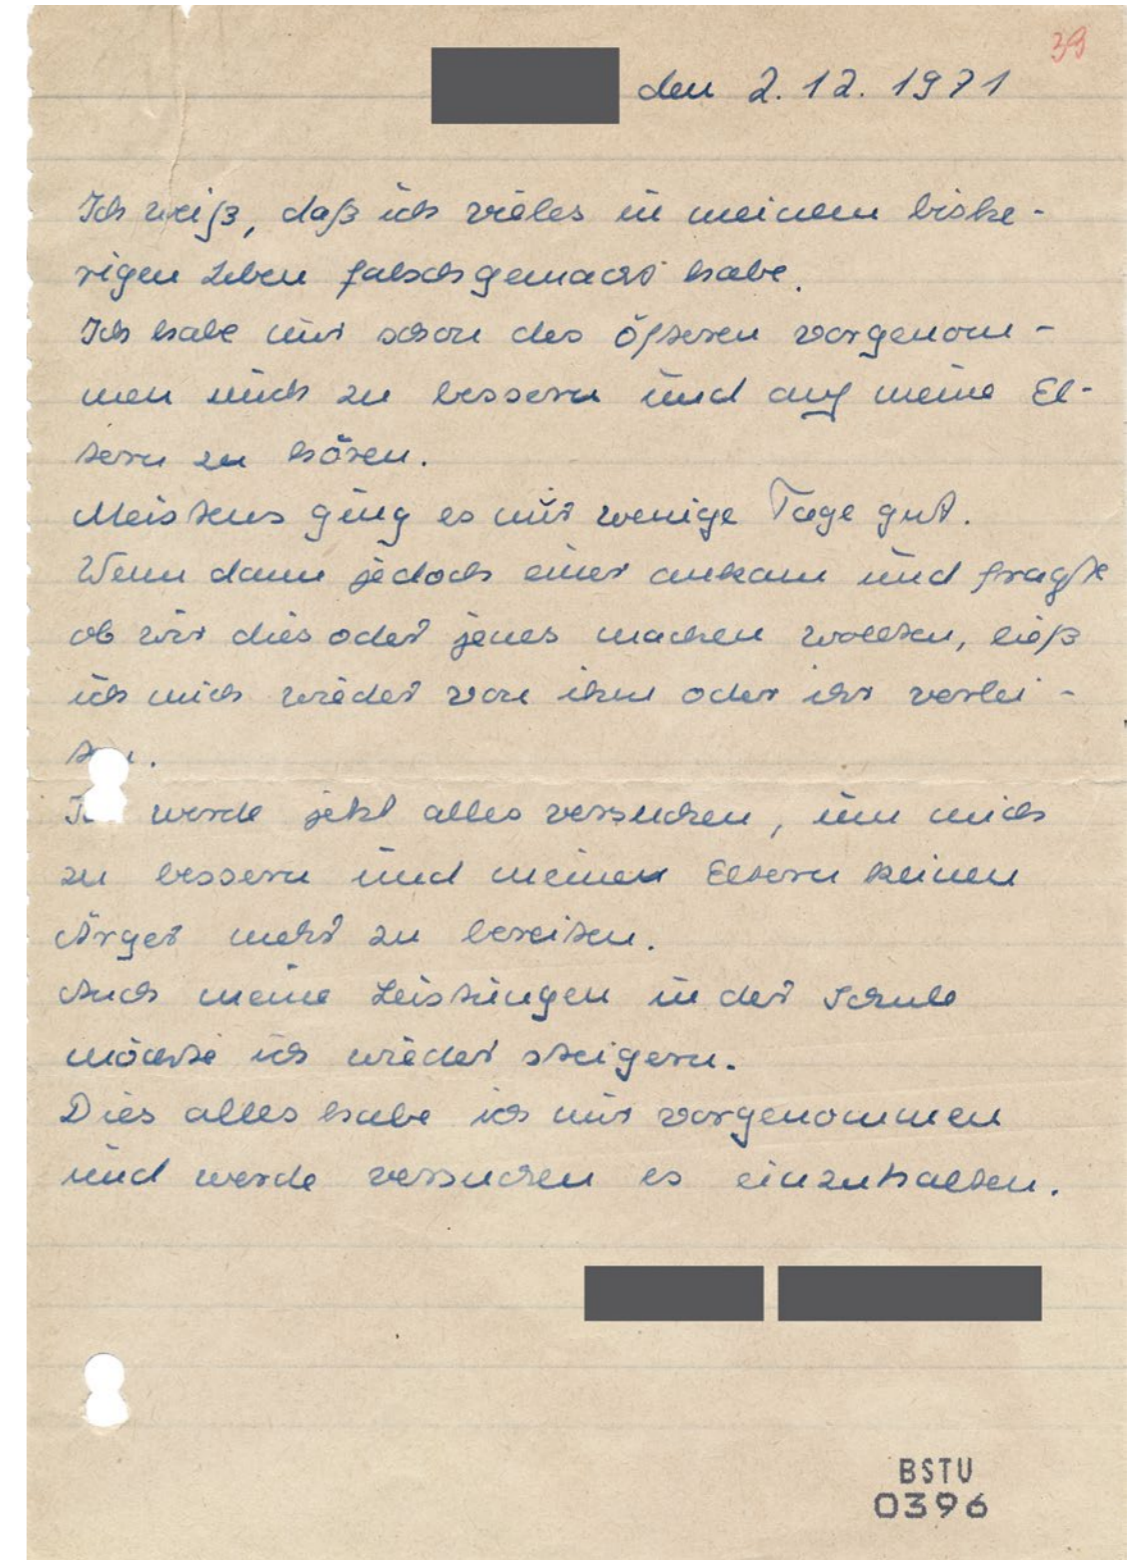 39
den 2. 12. 1971
Ich weiß, daß ich vieles in meinem bishe-
rigen Leben falsch gemacht habe.
Ich habe mir schon des öfteren vorgenom-
men mich zu bessern und auf meine El-
tern zu hören.
Meistens ging es nur wenige Tage gut.
Wenn dann jedoch einer ankam und fragte
ob wir dies oder jenes machen wollten, ließ
ich mich wieder von ihm oder ihr verlei-
ten.
Ich werde jetzt alles versuchen, um mich
zu bessern und meinen Eltern keinen
Ärger mehr zu bereiten.
Auch meine Leistungen in der Schule
möchte ich wieder steigern.
Dies alles habe ich mir vorgenommen
und werde versuchen es einzuhalten.
BSTU
0396